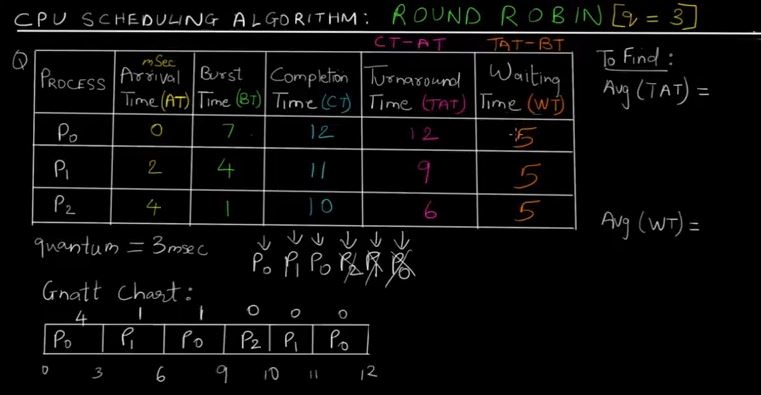 CPU SCHEDULING ALGORITHM: ROUND ROBIN [q = 3]
CT-AT TAT-BT
Q
PROCESS mSec Arrival Time (AT) Burst Time (BT) Completion Time (CT) Turnaround Time (TAT) Waiting Time (WT)
P0 0 7 12 12 5
P1 2 4 11 9 5
P2 4 1 10 6 5
To Find:
Avg (TAT) =
Avg (WT) =
quantum = 3msec
P0 P1 P0 P2 P1 P0
Gnatt Chart:
4 1 1 0 0 0
P0 P1 P0 P2 P1 P0
0 3 6 9 10 11 12